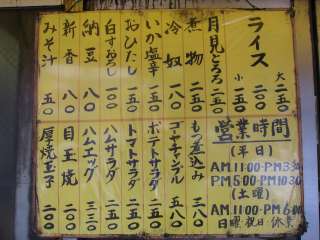 ライス
大 二五〇
小 二〇〇
月見とろろ 二五〇
煮物
冷奴 一八〇
いか塩辛 二五〇
おひたし 一五〇
白すおろし 二五〇
納豆 一〇〇
新香 八〇
みそ汁 五〇
営業時間
(平日)
AM11:00-PM3:30
PM5:00-PM10:30
(土曜)
AM11:00-PM6:00
日曜・祝日・休業
もつ煮込み 三八〇
ゴーヤチャンプル 五八〇
ポテトサラダ 二五〇
トマトサラダ 二五〇
ハムサラダ 二五〇
ハムエッグ 三三〇
目玉焼 二〇〇
厚焼玉子 二〇〇